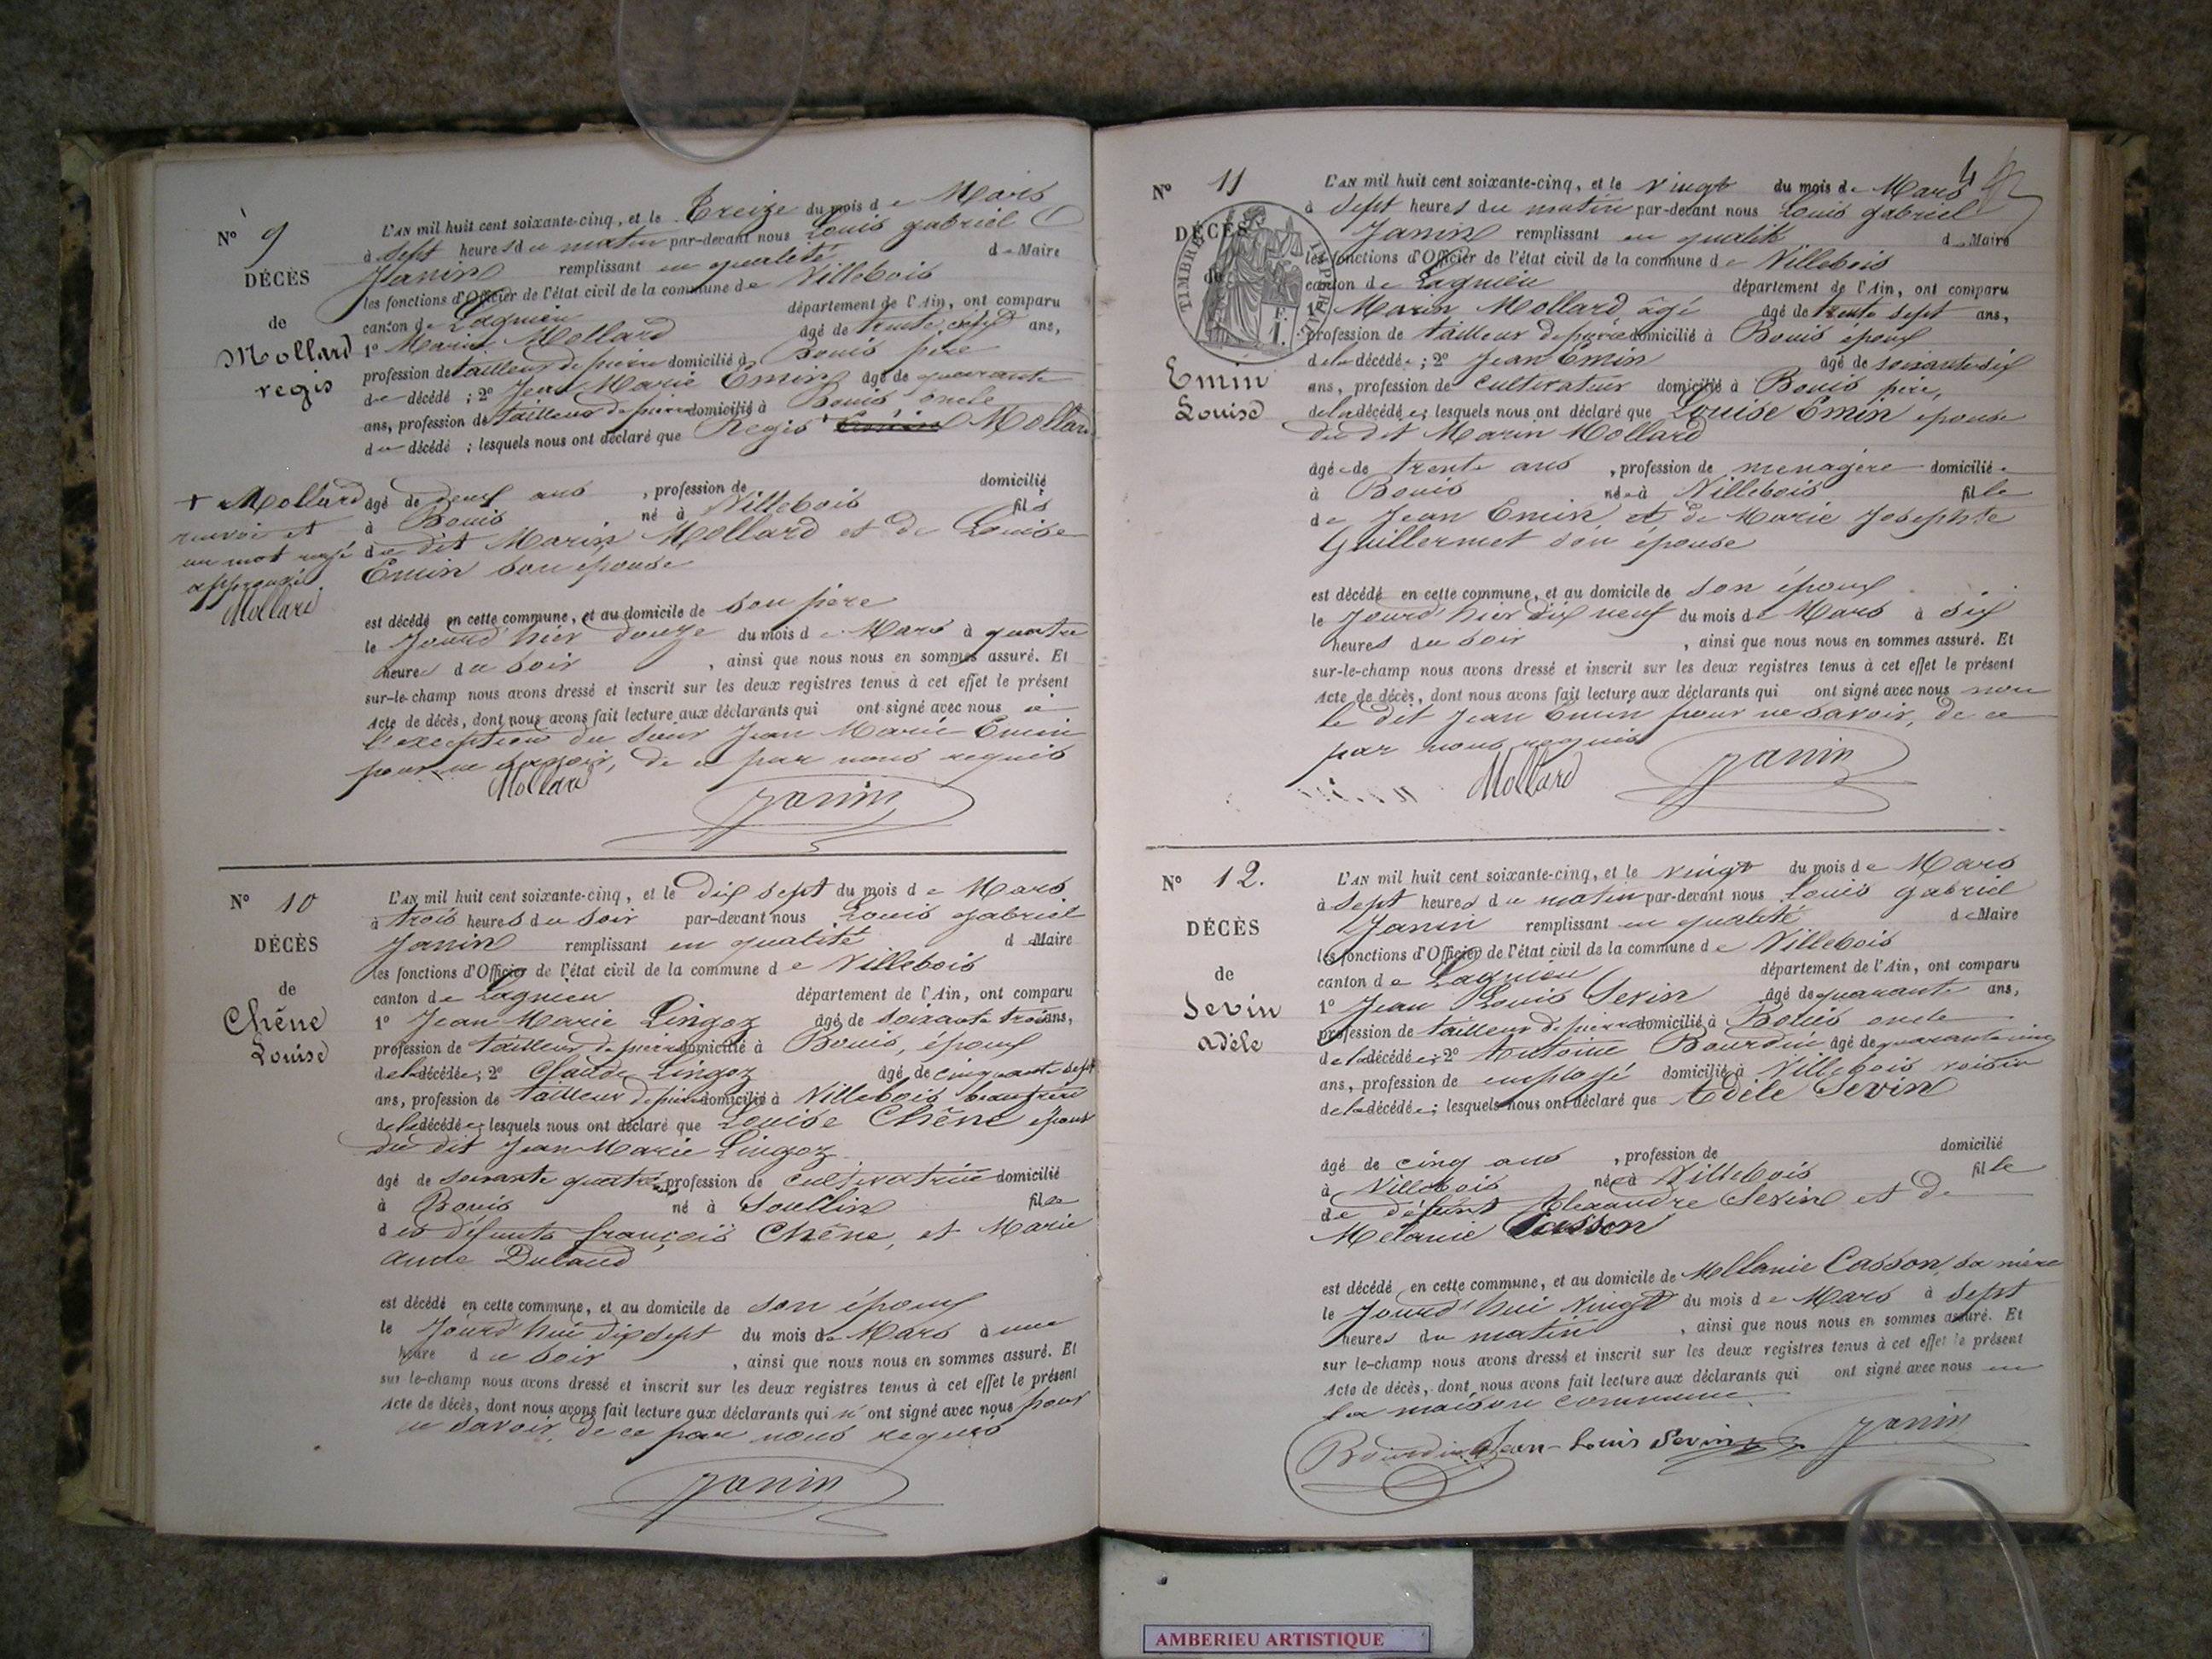 N° 9
DÉCÈS
de
Mollard
regis
L'AN mil huit cent soixante-cinq, et le Treize du mois de Mars
à sept heures du matin par-devant nous Louis gabriel
Janin remplissant en qualité de Maire
les fonctions d'Officier de l'état civil de la commune de Villebois
canton de Lagnieu département de l'Ain, ont comparu
1° Marin Mollard âgé de trente sept ans,
profession de tailleur de pierre domicilié à Bouis père
du décédé ; 2° Jean Marie Emin âgé de quarante
ans, profession de tailleur de pierre domicilié à Bouis oncle
du décédé ; lesquels nous ont déclaré que Regis + Mollard
+ Mollard
renvoi et
un mot rayé
approuvé.
Mollard
âgé de deux ans , profession de domicilié
à Bouis né à Villebois fils
du dit Marin Mollard et de Louise
Emin son épouse
est décédé en cette commune, et au domicile de son père
le Jourd'hier douze du mois de Mars à quatre
heures du soir , ainsi que nous nous en sommes assuré. Et
sur-le-champ nous avons dressé et inscrit sur les deux registres tenus à cet effet le présent
Acte de décès, dont nous avons fait lecture aux déclarants qui ont signé avec nous à
l'exception du sieur Jean Marie Emin
pour ne savoir, de ce par nous requis
Mollard
Janin
N° 10
DÉCÈS
de
Chêne
Louise
L'AN mil huit cent soixante-cinq, et le dix sept du mois de Mars
à trois heures du soir par-devant nous Louis gabriel
Janin remplissant en qualité de Maire
les fonctions d'Officier de l'état civil de la commune de Villebois
canton de Lagnieu département de l'Ain, ont comparu
1° Jean Marie Lingoz âgé de soixante trois ans,
profession de tailleur de pierre domicilié à Bouis, époux
de la décédée ; 2° Claude Lingoz âgé de cinquante sept
ans, profession de tailleur de pierre domicilié à Villebois beau frère
de la décédée ; lesquels nous ont déclaré que Louise Chêne épouse
du dit Jean Marie Lingoz
âgé de soixante quatre profession de cultivatrice domicilié
à Bouis né à Soullin fille
des défunts françois Chêne, et Marie
anne Dulaud
est décédé en cette commune, et au domicile de son époux
le Jourd'hui dix sept du mois de Mars à une
heure du soir , ainsi que nous nous en sommes assuré. Et
sur le-champ nous avons dressé et inscrit sur les deux registres tenus à cet effet le présent
Acte de décès, dont nous avons fait lecture aux déclarants qui n'ont signé avec nous pour
ne savoir, de ce par nous requis
Janin
4
N° 11
DÉCÈS
de
TIMBRE IMPERIAL
Emin
Louise
L'AN mil huit cent soixante-cinq, et le vingt du mois de Mars
à sept heures du matin par-devant nous Louis gabriel
Janin remplissant en qualité de Maire
les fonctions d'Officier de l'état civil de la commune de Villebois
canton de Lagnieu département de l'Ain, ont comparu
1° Marin Mollard âgé âgé de trente sept ans,
profession de tailleur de pierre domicilié à Bouis époux
de la décédée ; 2° Jean Emin âgé de soixante dix
ans, profession de cultivateur domicilié à Bouis père,
de la décédée ; lesquels nous ont déclaré que Louise Emin epouse
du dit Marin Mollard
âgée de trente ans , profession de menagère domiciliée
à Bouis née à Villebois fille
de Jean Emin, et de Marie Josephte
Guillermet son épouse
est décédé en cette commune, et au domicile de son époux
le Jourd'hier dix neuf du mois de Mars à six
heures du soir , ainsi que nous nous en sommes assuré. Et
sur-le-champ nous avons dressé et inscrit sur les deux registres tenus à cet effet le présent
Acte de décès, dont nous avons fait lecture aux déclarants qui ont signé avec nous non
le dit Jean Emin pour ne savoir, de ce
par nous requis
Mollard
Janin
N° 12.
DÉCÈS
de
Sevin
adèle
L'AN mil huit cent soixante-cinq, et le vingt du mois de Mars
à sept heures du matin par-devant nous Louis gabriel
Janin remplissant en qualité de Maire
les fonctions d'Officier de l'état civil de la commune de Villebois
canton de Lagnieu département de l'Ain, ont comparu
1° Jean Louis Sevin âgé de quarante ans,
profession de tailleur de pierre domicilié à Bouis oncle
de la décédée ; 2° Antoine Bourdin âgé de quarante cinq
ans, profession de employé domicilié à Villebois voisin
de la décédée ; lesquels nous ont déclaré que Adèle Sevin
âgé de cinq ans , profession de domicilié
à Villebois née à Villebois fille
de défunt Alexandre Sevin et de
Mélanie Casson
est décédé en cette commune, et au domicile de Mélanie Casson, sa mère
le Jourd'hui vingt du mois de Mars à sept
heures du matin , ainsi que nous nous en sommes assuré. Et
sur le-champ nous avons dressé et inscrit sur les deux registres tenus à cet effet le présent
Acte de décès, dont nous avons fait lecture aux déclarants qui ont signé avec nous en
la maison commune
Bourdin Jean-Louis Sevin Janin
AMBERIEU ARTISTIQUE